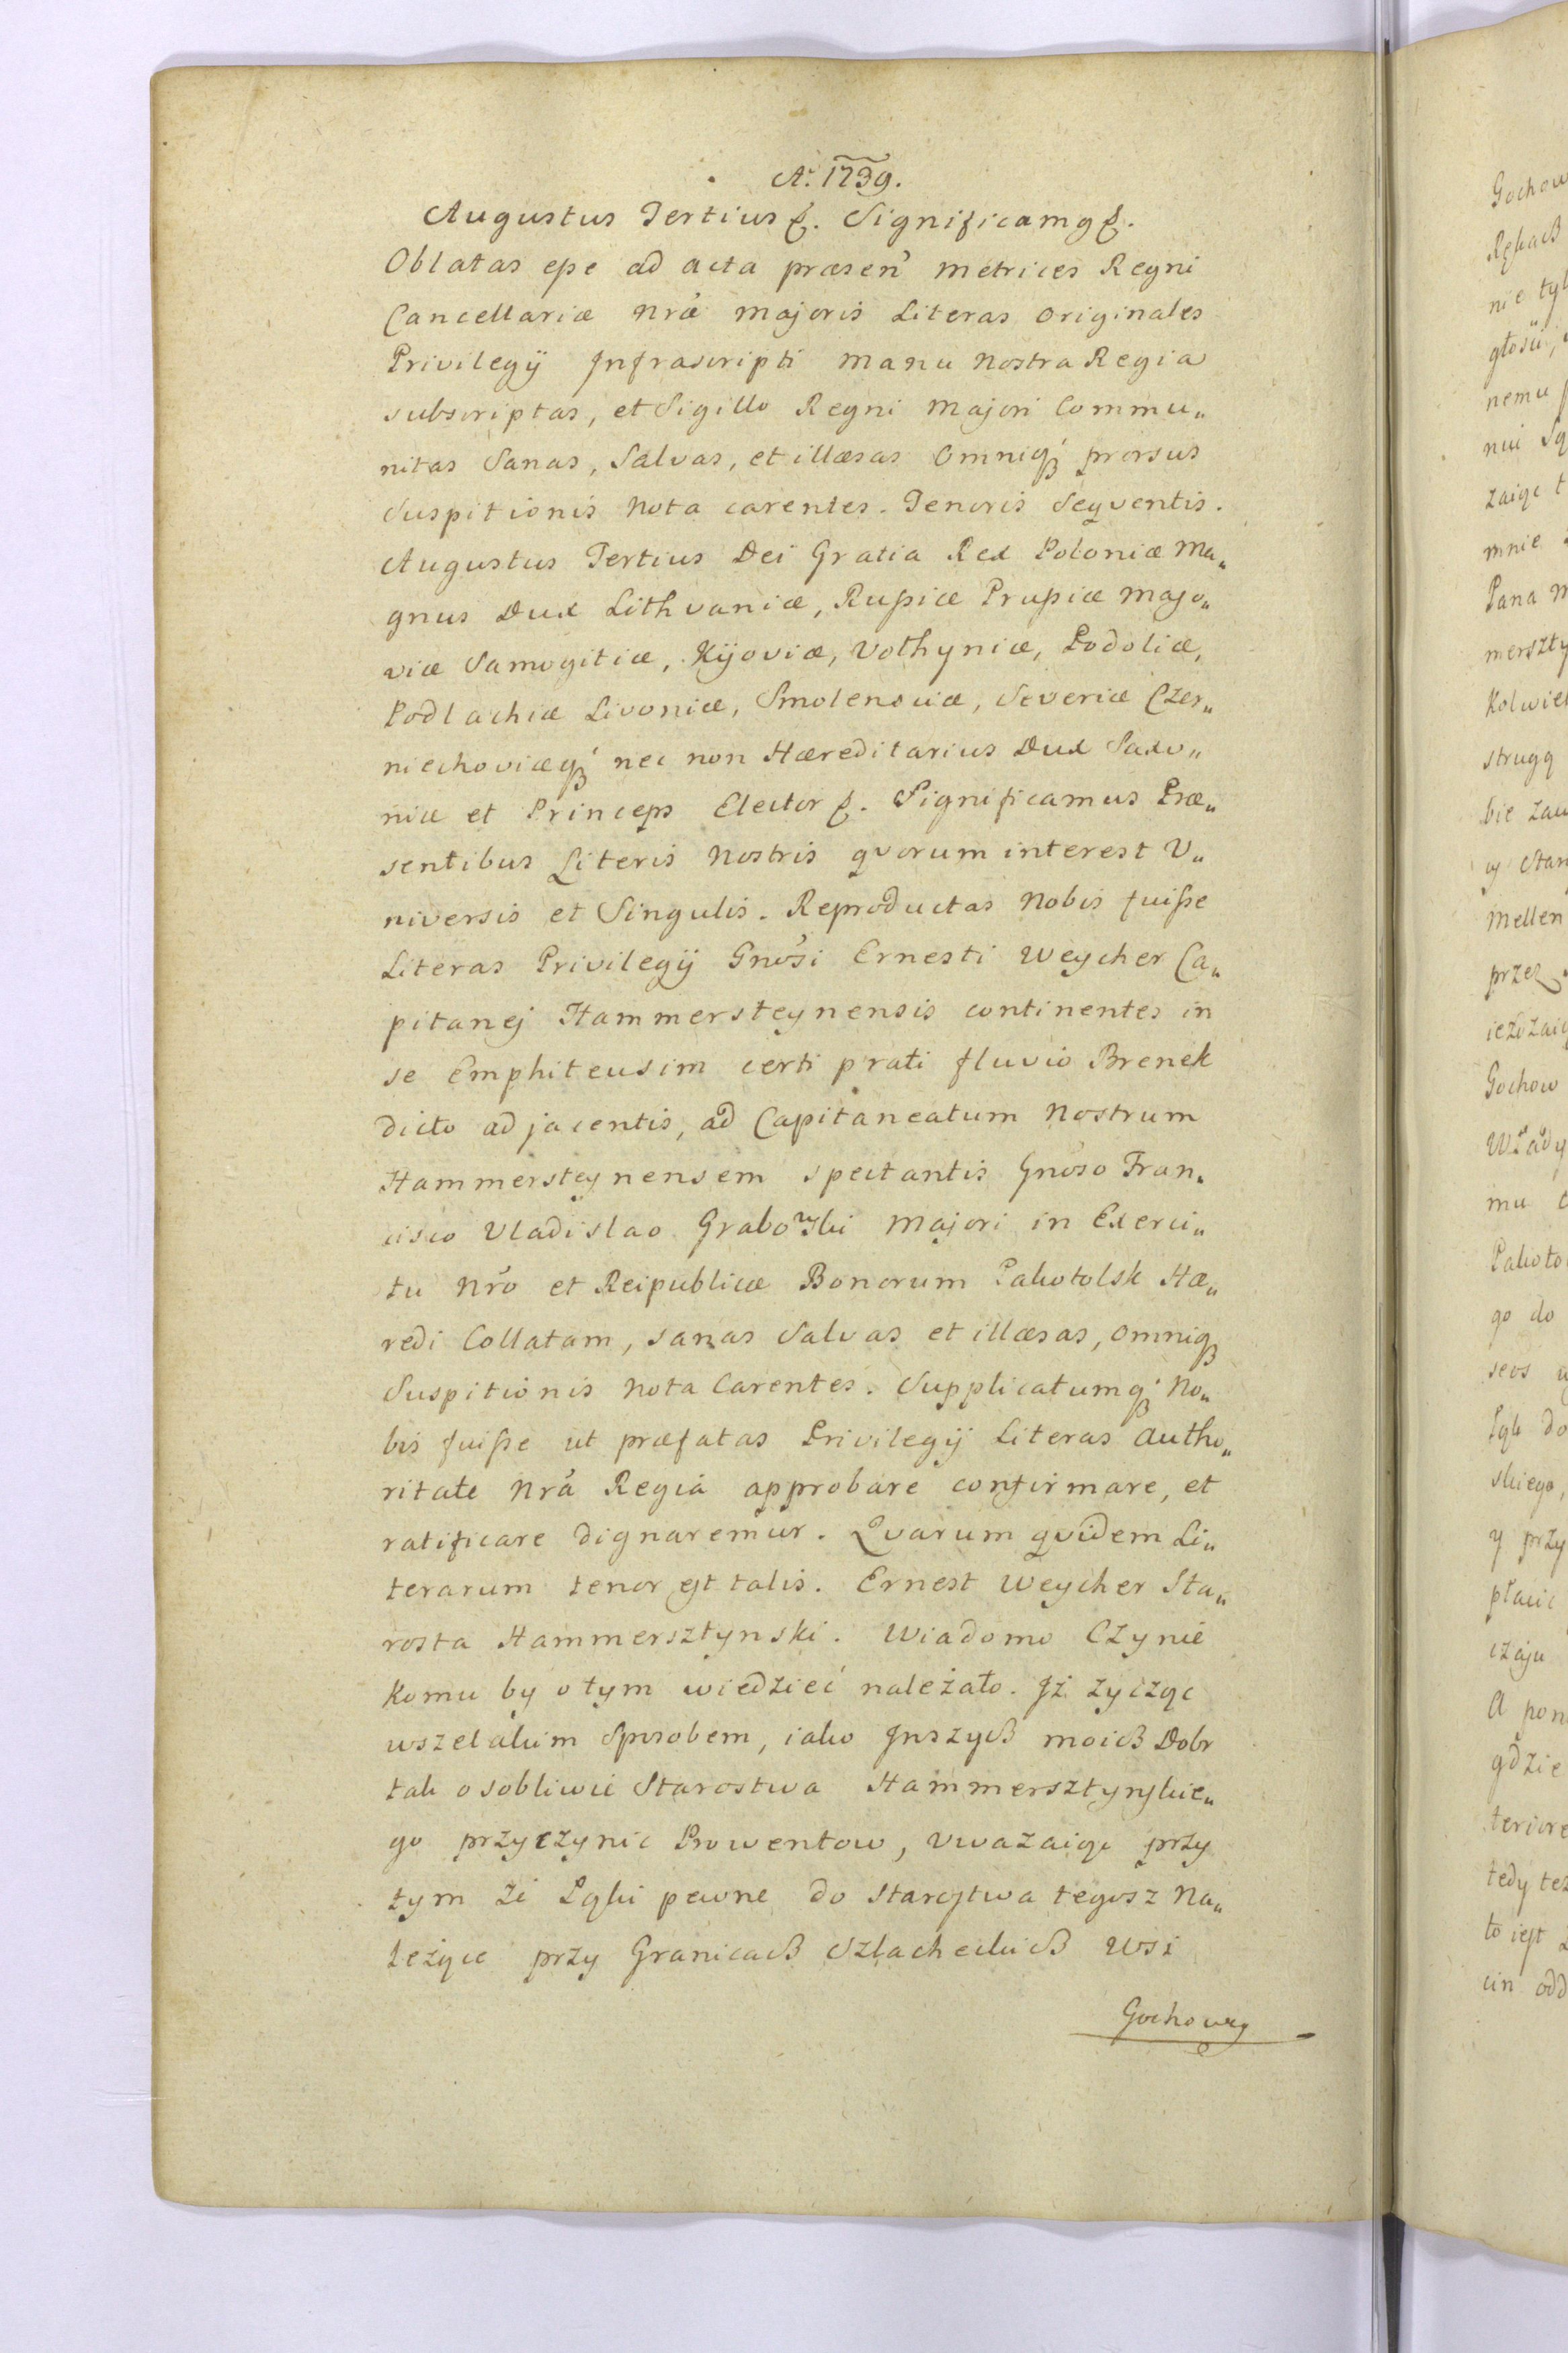 Aº. 1739.
Augustus Tertius &. Significamg &.
Oblatas eße ad acta præsen̓ metrices Regni
Cancellariæ nræ̓ Majoris Literas Originales
Privilegÿ Infrascripti manu Nostra Regia
subscriptas, et Sigillo Regni Majori Commu„
nitas Sanas, Salvas, et illæsas Omniq́ꝫ prorsus
Suspitionis Nota carentes. Tenoris Seqventis.
Augustus Tertius Dei Gratia Rex Poloniæ Ma„
gnus Dux Lithvaniæ, Rußiæ Prußiæ Maso„
viæ Samogitiæ, Kÿoviæ, Volhyniæ, Podoliæ,
Podlachiæ Livoniæ, Smolensciæ, Severiæ Czer„
niechoviæq́ꝫ nec non Hæreditarius Dux Saxo„
niæ et Princeps Elector &. Significamus Præ„
sentibus Literis Nostris qvorum interest V„
niversis et Singulis. Reproductas Nobis fuiße
Literas Privilegÿ Gnos̓i Ernesti Weycher Ca„
pitanej Hammersteynensis continentes in
se Emphiteusim certi prati fluvio Brenek
dicto adjacentis, ad Capitaneatum Nostrum
Hammersteynensem spectantis Gnoso Fran„
cisco Vladislao Grabowski Majori in Exerci„
tu Nro̓ et Reipublicæ Bonorum Pakotolsk Hæ„
redi Collatam, sanas Salvas et illæsas, omniqꝫ
Suspitionis Nota Carentes. Supplicatumq́ꝫ No„
bis fuiße ut præfatas Privilegÿ Literas Autho„
ritate Nra̓ Regiá approbare confirmare, et
ratificare dignaremur. Qvarum qvidem Li„
terarum tenor est talis. Ernest Weycher Sta„
rosta Hammersztynski. Wiadomo Czynie
Komu by o tym wiedzieć należało. Jż zycząc
wszelakim Sposobem, iako Jnszych moich Dobr
tak osobliwie Starostwa Hammersztynskie„
go przyczynic Prowentow, vwazaiąc przy
tym że Łąki pewne do Starostwa tegosz Na„
leżące przy Granicach Szlacheckich Wsi
Gochowy
Gochow
Rękach
nie tyl
głosü,
nemu
nui Są
zaiąc t
mnie
Pana M
merszty
Kolwiek
strugą
bie zaw
y Stan
Mellen
przez
ieżdzaią
Gochow
Włady
mu
Pakoto
go do
seos
Łąk do
skiego,
y przy
płacic
czaju
A pon
gdzie
teriore
tedy też
to iest
cin odd